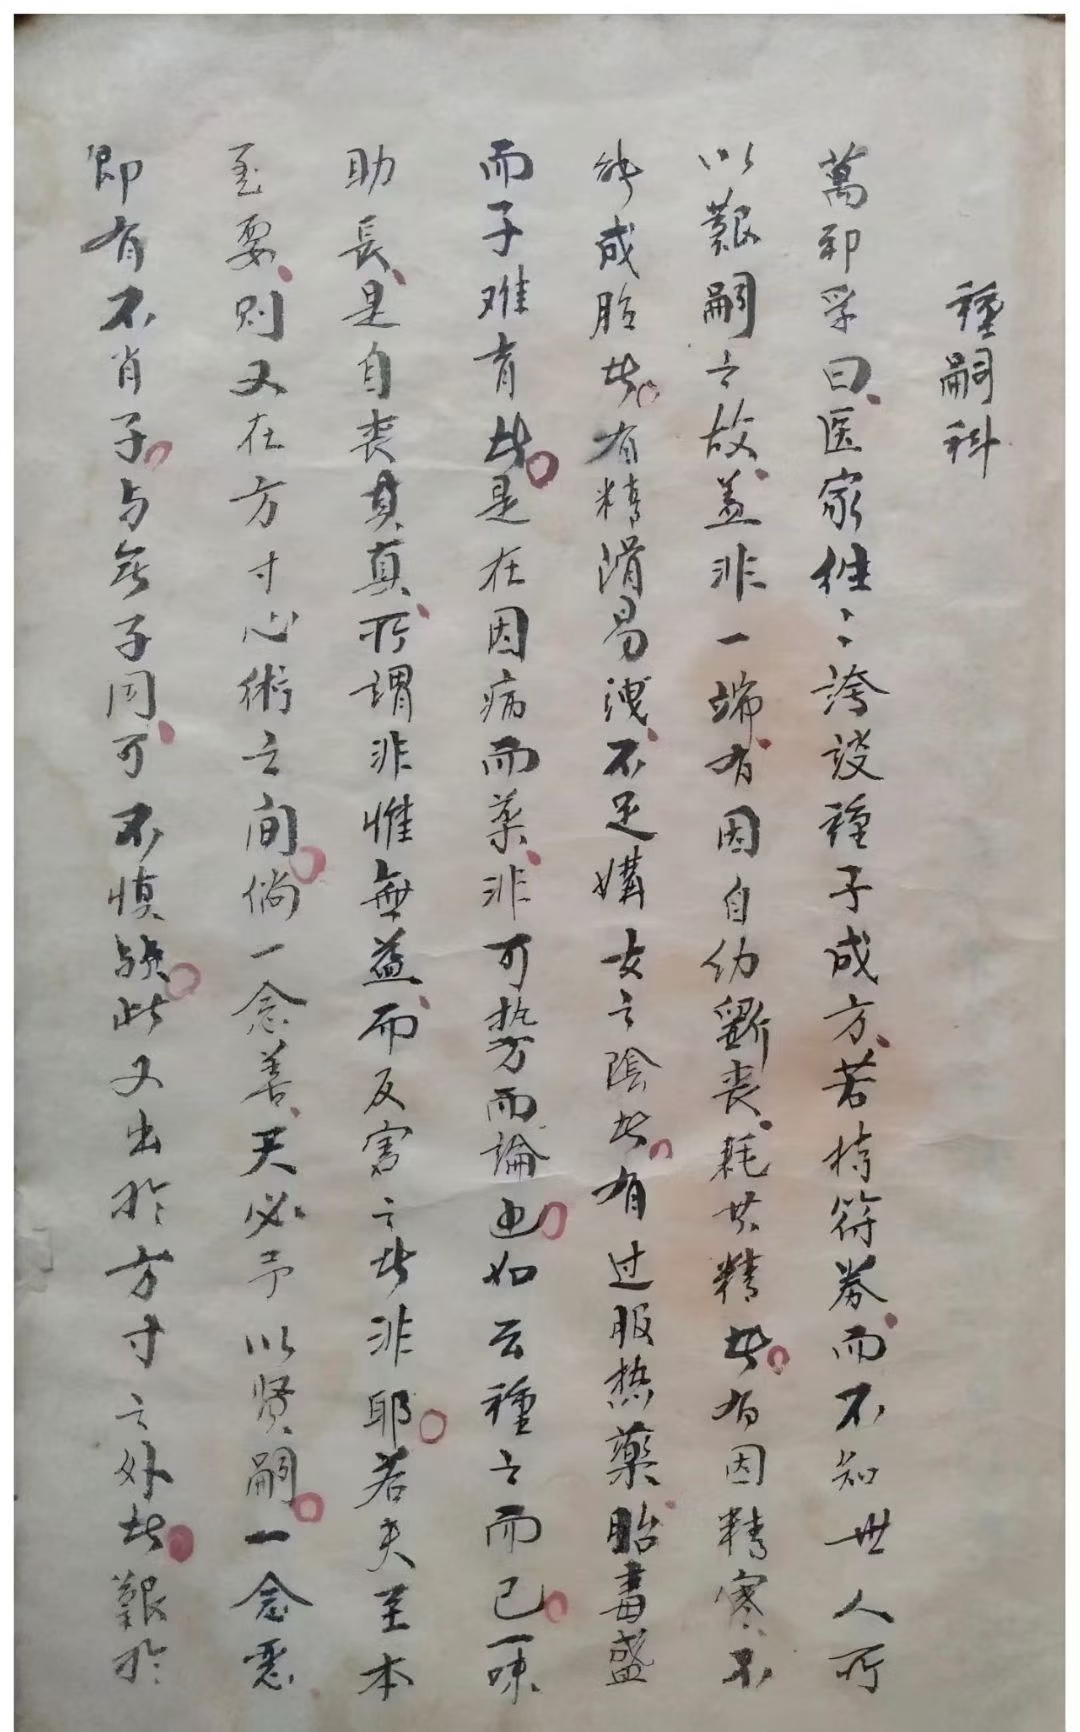 種嗣科
萬邦孚曰医家往々誇談種子成方若持符券而不知世人所
以艱嗣之故盖非一端有因自幼斲丧耗其精者有因精寒不
能成胎者有精滑易洩不足媾女之陰者有过服热藥胎毒盛
而子难育者是在因病而薬非可執方而論也如云種之而已一味
助長是自丧其真所謂非惟無益而反害之者非耶若夫至本
至要則又在方寸心術之间倘一念善天必予以贤嗣一念悪
即有不肖子与無子同可不慎欤此又出於方寸之外者艱於